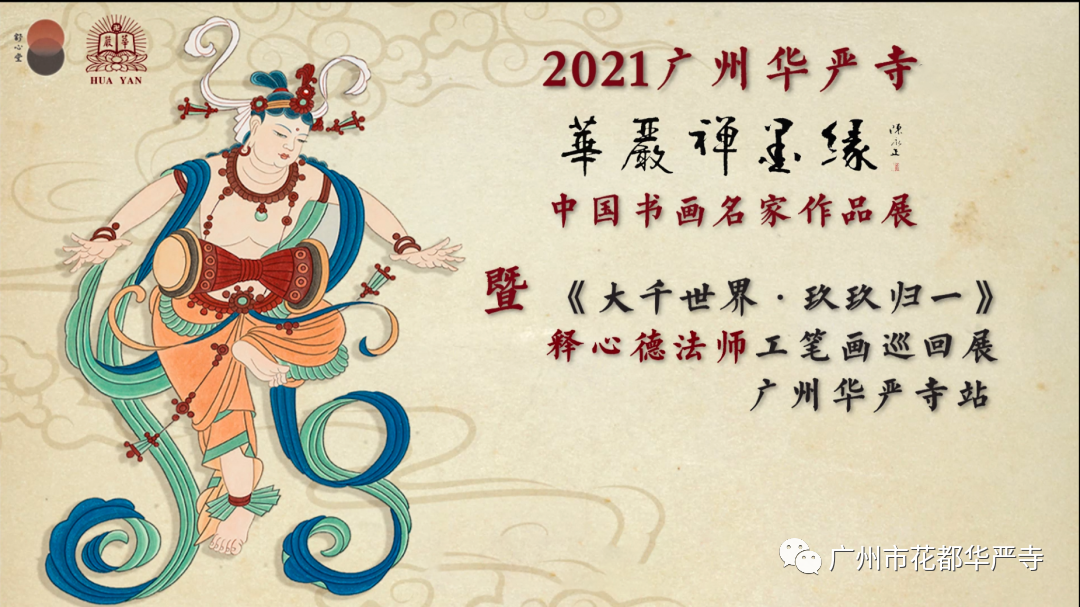 释心堂
華嚴
HUA YAN
2021广州华严寺
華嚴禅墨缘
陈永正
中国书画名家作品展
暨
《大千世界·玖玖归一》
释心德法师工笔画巡回展
广州华严寺站
广州市花都华严寺